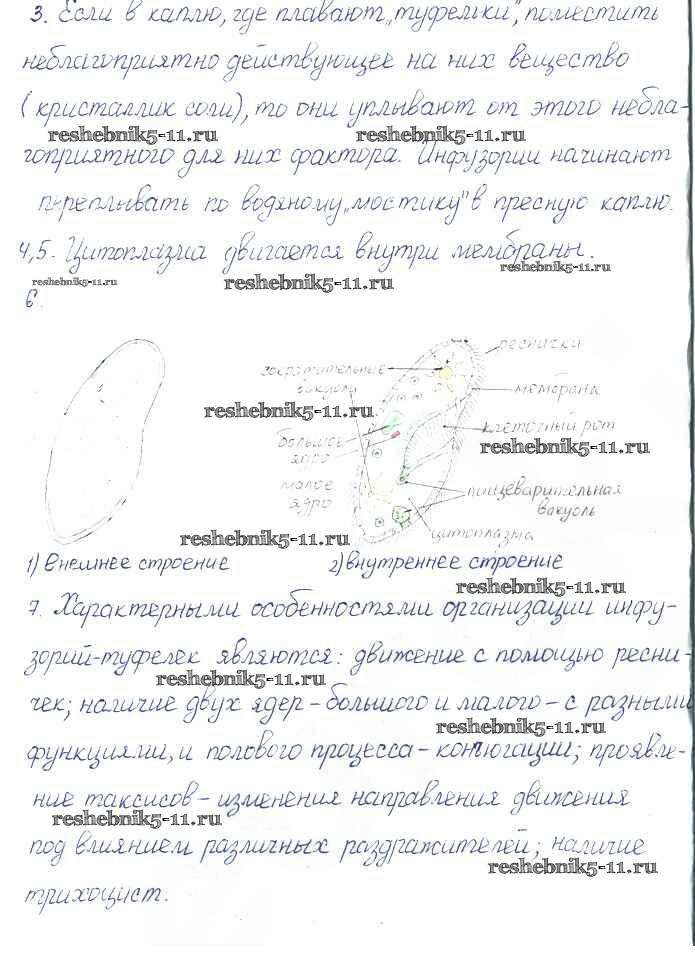 3. Если в каплю, где плавают „туфельки", поместить
неблагоприятно действующее на них вещество
(кристаллик соли), то они уплывают от этого небла-
reshebnik5-11.ru reshebnik5-11.ru
гоприятного для них фактора. Инфузории начинают
переплывать по водяному „мостику" в пресную каплю.
4,5. Цитоплазма двигается внутри мембраны.
reshebnik5-11.ru reshebnik5-11.ru reshebnik5-11.ru
6.
реснички
сократительные
вакуоли
мембрана
reshebnik5-11.ru
клеточный рот
большое
ядро
reshebnik5-11.ru
малое
ядро
пищеварительная
вакуоль
цитоплазма
reshebnik5-11.ru
1) Внешнее строение 2) внутреннее строение
reshebnik5-11.ru
7. Характерными особенностями организации инфу-
зорий-туфелек являются: движение с помощью ресни-
reshebnik5-11.ru
чек; наличие двух ядер – большого и малого – с разными
reshebnik5-11.ru
функциями, и полового процесса – конъюгации; проявле-
ние таксисов – изменения направления движения
reshebnik5-11.ru
под влиянием различных раздражителей; наличие
reshebnik5-11.ru
трихоцист.